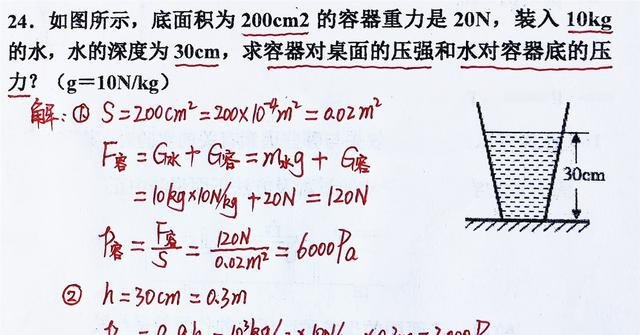 24. 如图所示，底面积为 200cm2 的容器重力是 20N，装入 10kg
的水，水的深度为 30cm，求容器对桌面的压强和水对容器底的压
力？（g＝10N/kg）
解：① S＝200cm²＝200×10⁻⁴m²＝0.02m²
F容＝G水＋G容＝m水g＋G容
＝10kg×10N/kg＋20N＝120N
P容＝F容/S＝120N/0.02m²＝6000Pa
30cm
② h＝30cm＝0.3m